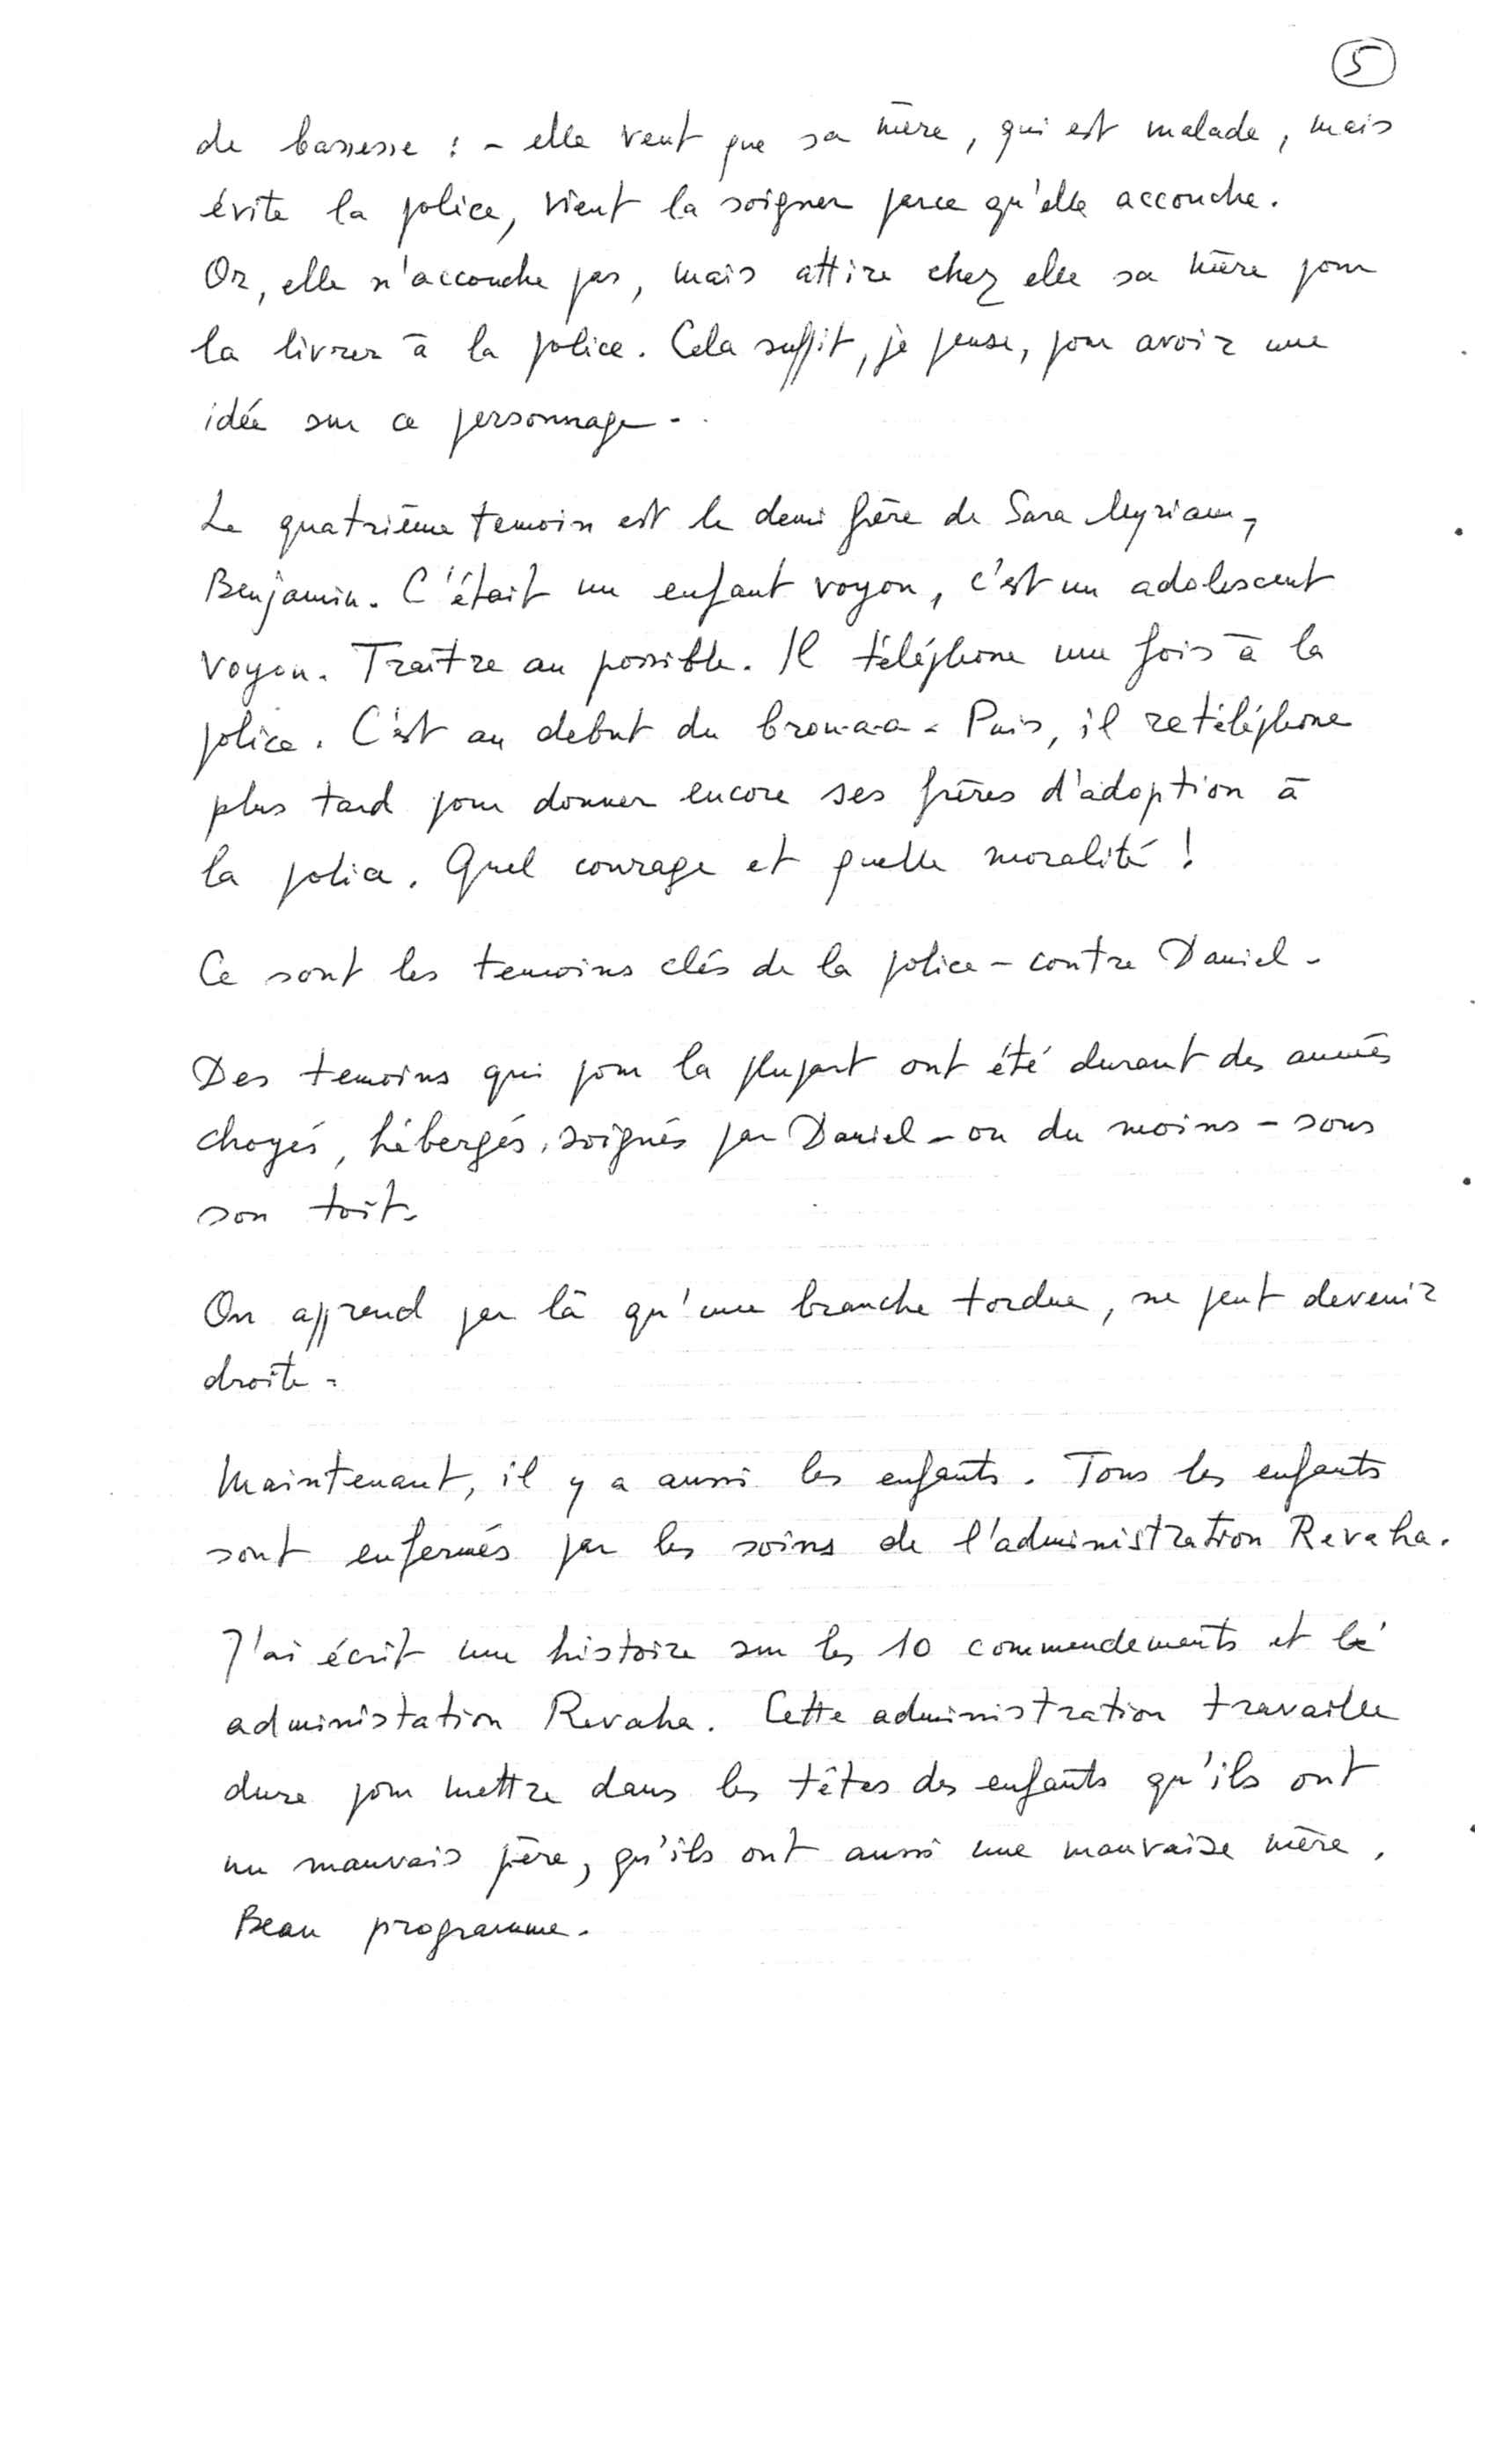 5
de bassesse : - elle veut que sa mère, qui est malade, mais
évite la police, vient la soigner parce qu'elle accouche.
Or, elle n'accouche pas, mais attire chez elle sa mère pour
la livrer à la police. Cela suffit, je pense, pour avoir une
idée sur ce personnage.
Le quatrième temoin est le demi frère de Sara Myriam,
Benjamin. C'était un enfant voyou, c'est un adolescent
voyou. Traître au possible. Il téléphone une fois à la
police. C'est au debut du brou-a-a. Puis, il retéléphone
plus tard pour donner encore ses frères d'adoption à
la police. Quel courage et quelle moralité !
Ce sont les temoins clés de la police - contre Daniel.
Des temoins qui pour la plupart ont été durant des années
choyés, hébergés, soignés par Daniel - ou du moins - sous
son toit.
On apprend par là qu'une branche tordue, ne peut devenir
droite.
Maintenant, il y a aussi les enfants. Tous les enfants
sont enfermés par les soins de l'administration Revaha.
J'ai écrit une histoire sur les 10 commendements et
administation Revaha. Cette administration travaille
dure pour mettre dans les têtes des enfants qu'ils ont
un mauvais père, qu'ils ont aussi une mauvaise mère.
Beau programme.